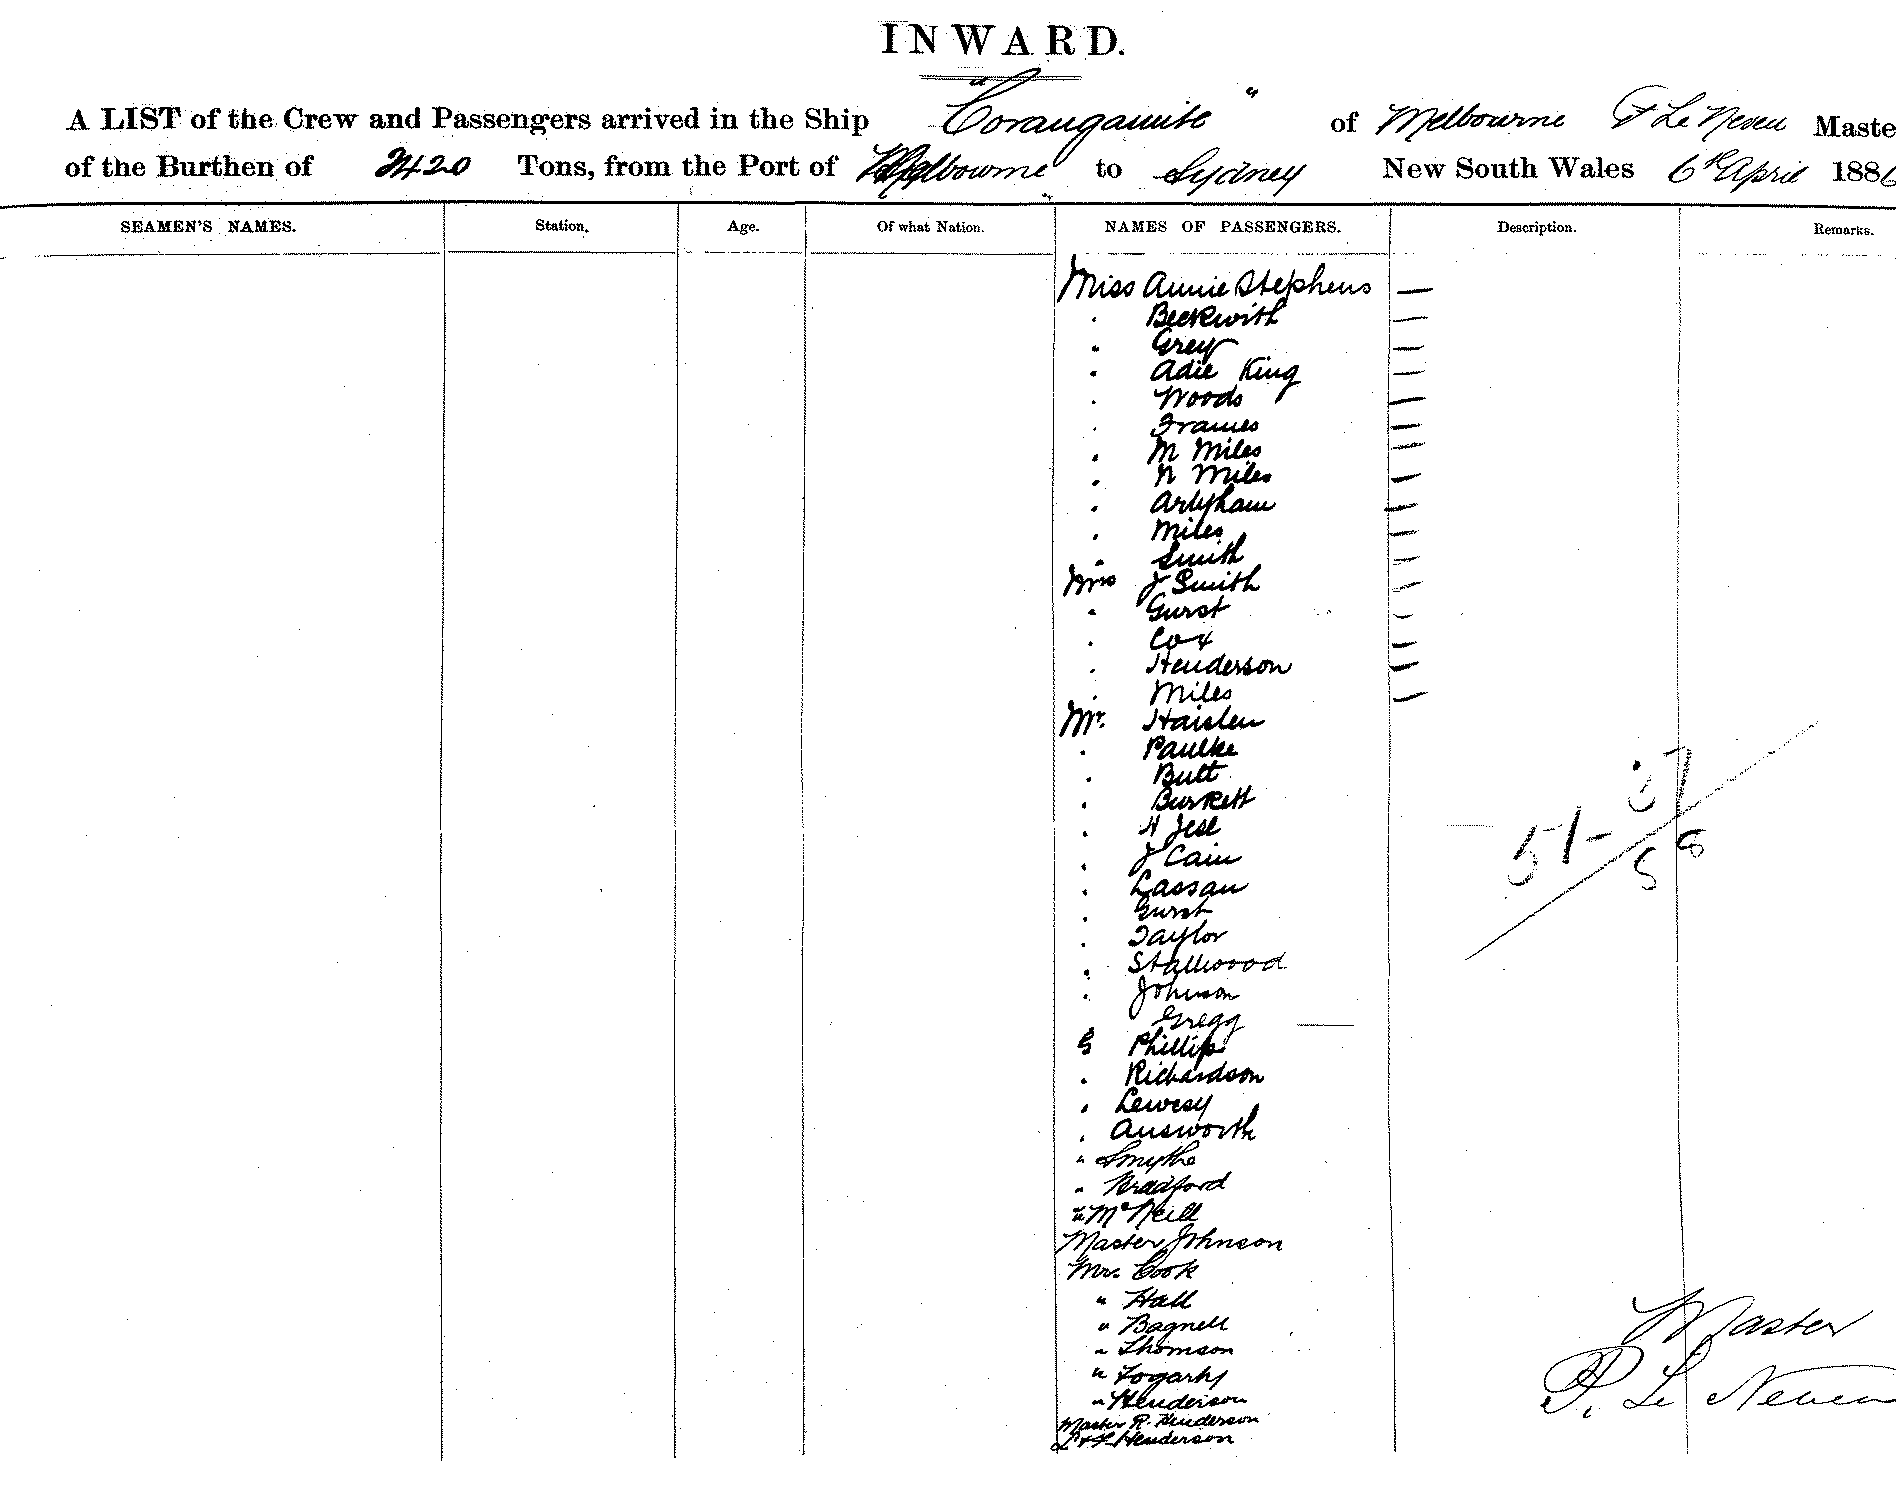 INWARD.
A LIST of the Crew and Passengers arrived in the Ship "Corangamite" of Melbourne F Le Neven Maste
of the Burthen of 2420 Tons, from the Port of Melbourne to Sydney New South Wales 6th April 1886
SEAMEN'S NAMES. Station. Age. Of what Nation. NAMES OF PASSENGERS. Description. Remarks.
Miss Annie Stephens —
. Beckwith —
" Grey —
" Adie King —
. Woods —
. Frames —
. M Miles —
. N Miles —
. —
. Miles —
" Smith —
Mrs J Smith —
" Gurst —
. Cox —
. Henderson —
. Miles —
Mr.
. Paulke
. Butt
. Burkett
. H
. J Cain
. Lassau
. Gurst
. Taylor
. Stallwood
. Johnson
Gregg
G Phillips
. Richardson
. Lewesy
. Ausworth
" Smythe
" Bradford
" McNeill
Master Johnson
Mr. Cook
" Hall
" Bagnell
" Thomson
" Fogarty
" Henderson
Master R. Henderson
Henderson
51- 37
58
Master
F. Le Neven